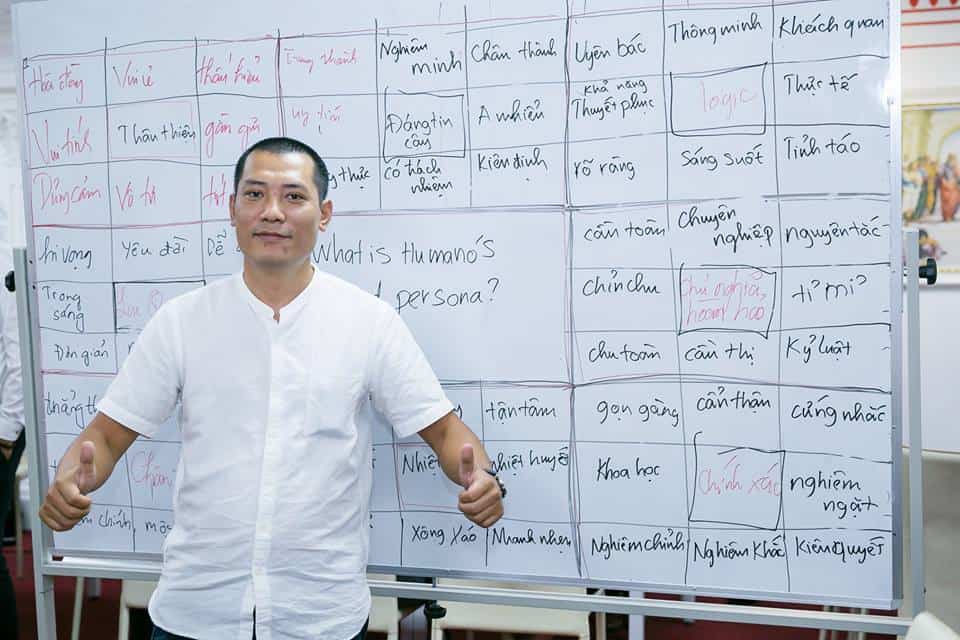 Hòa đồng
Vui vẻ
thấu hiểu
Trung thành
Nghiêm
minh
Chân thành
Uyên bác
Thông minh
Khách quan
Vui tính
Thân thiện
gần gũi
uy tín
Đáng tin
cậy
khả năng
Thuyết phục
logic
Thực tế
Dũng cảm
Vô tư
có trách
nhiệm
Kiên định
rõ ràng
Sáng suốt
Tỉnh táo
hi vọng
Yêu đời
Dễ
What is Humano's
persona?
cẩn toàn
Chuyên
nghiệp
nguyên tắc
Trong
sáng
chỉn chu
chủ nghĩa
hoàn hảo
tỉ mỉ
Đơn giản
chu toàn
cẩn thị
Kỷ luật
tận tâm
gọn gàng
cẩn thận
cứng nhắc
Nhiệt
nhiệt huyết
Khoa học
Chính xác
nghiêm
ngặt
chính
Xông xáo
Nhanh nhẹn
Nghiêm chỉnh
Nghiêm khắc
Kiên quyết